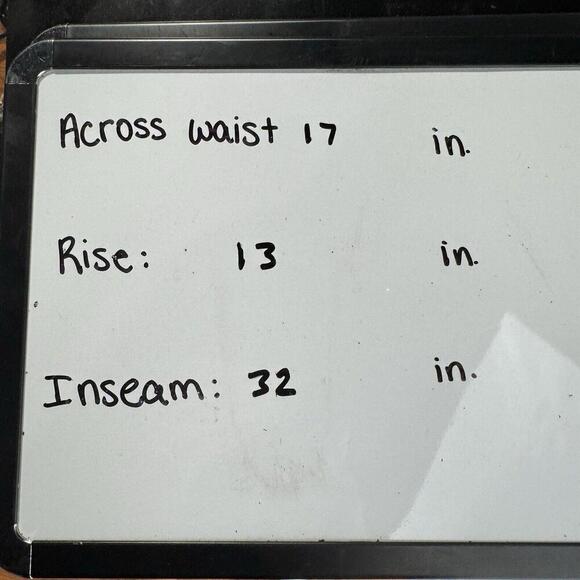 Across waist 17 in.
Rise: 13 in.
Inseam: 32 in.